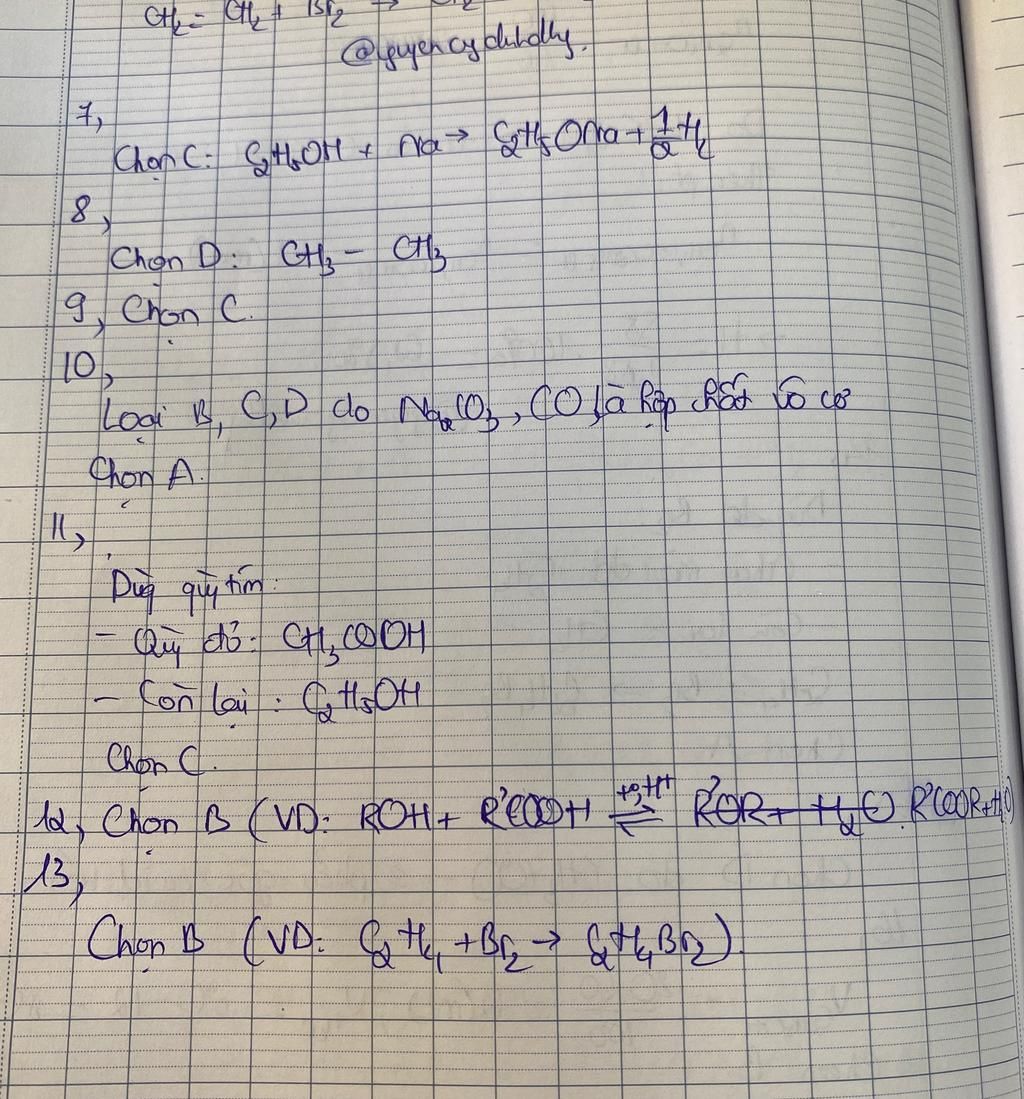 CH₂ = CH₂ + Br₂ →
7,
Chọn C: C₂H₅OH + Na → C₂H₅ONa + 1/2 H₂
8,
Chọn D: CH₃ - CH₃
9, Chọn C.
10,
Loại B, C, D do Na₂CO₃, CO là hợp chất vô cơ
Chọn A.
11,
Dùg quỳ tím:
- Quỳ đỏ: CH₃COOH
- Còn lại: C₂H₅OH
Chọn C.
12, Chọn B (VD: ROH + R'COOH ⇌ R'OR + H₂O. R'COOR + H₂O)
13,
Chọn B (VD: C₂H₄ + Br₂ → C₂H₄Br₂).